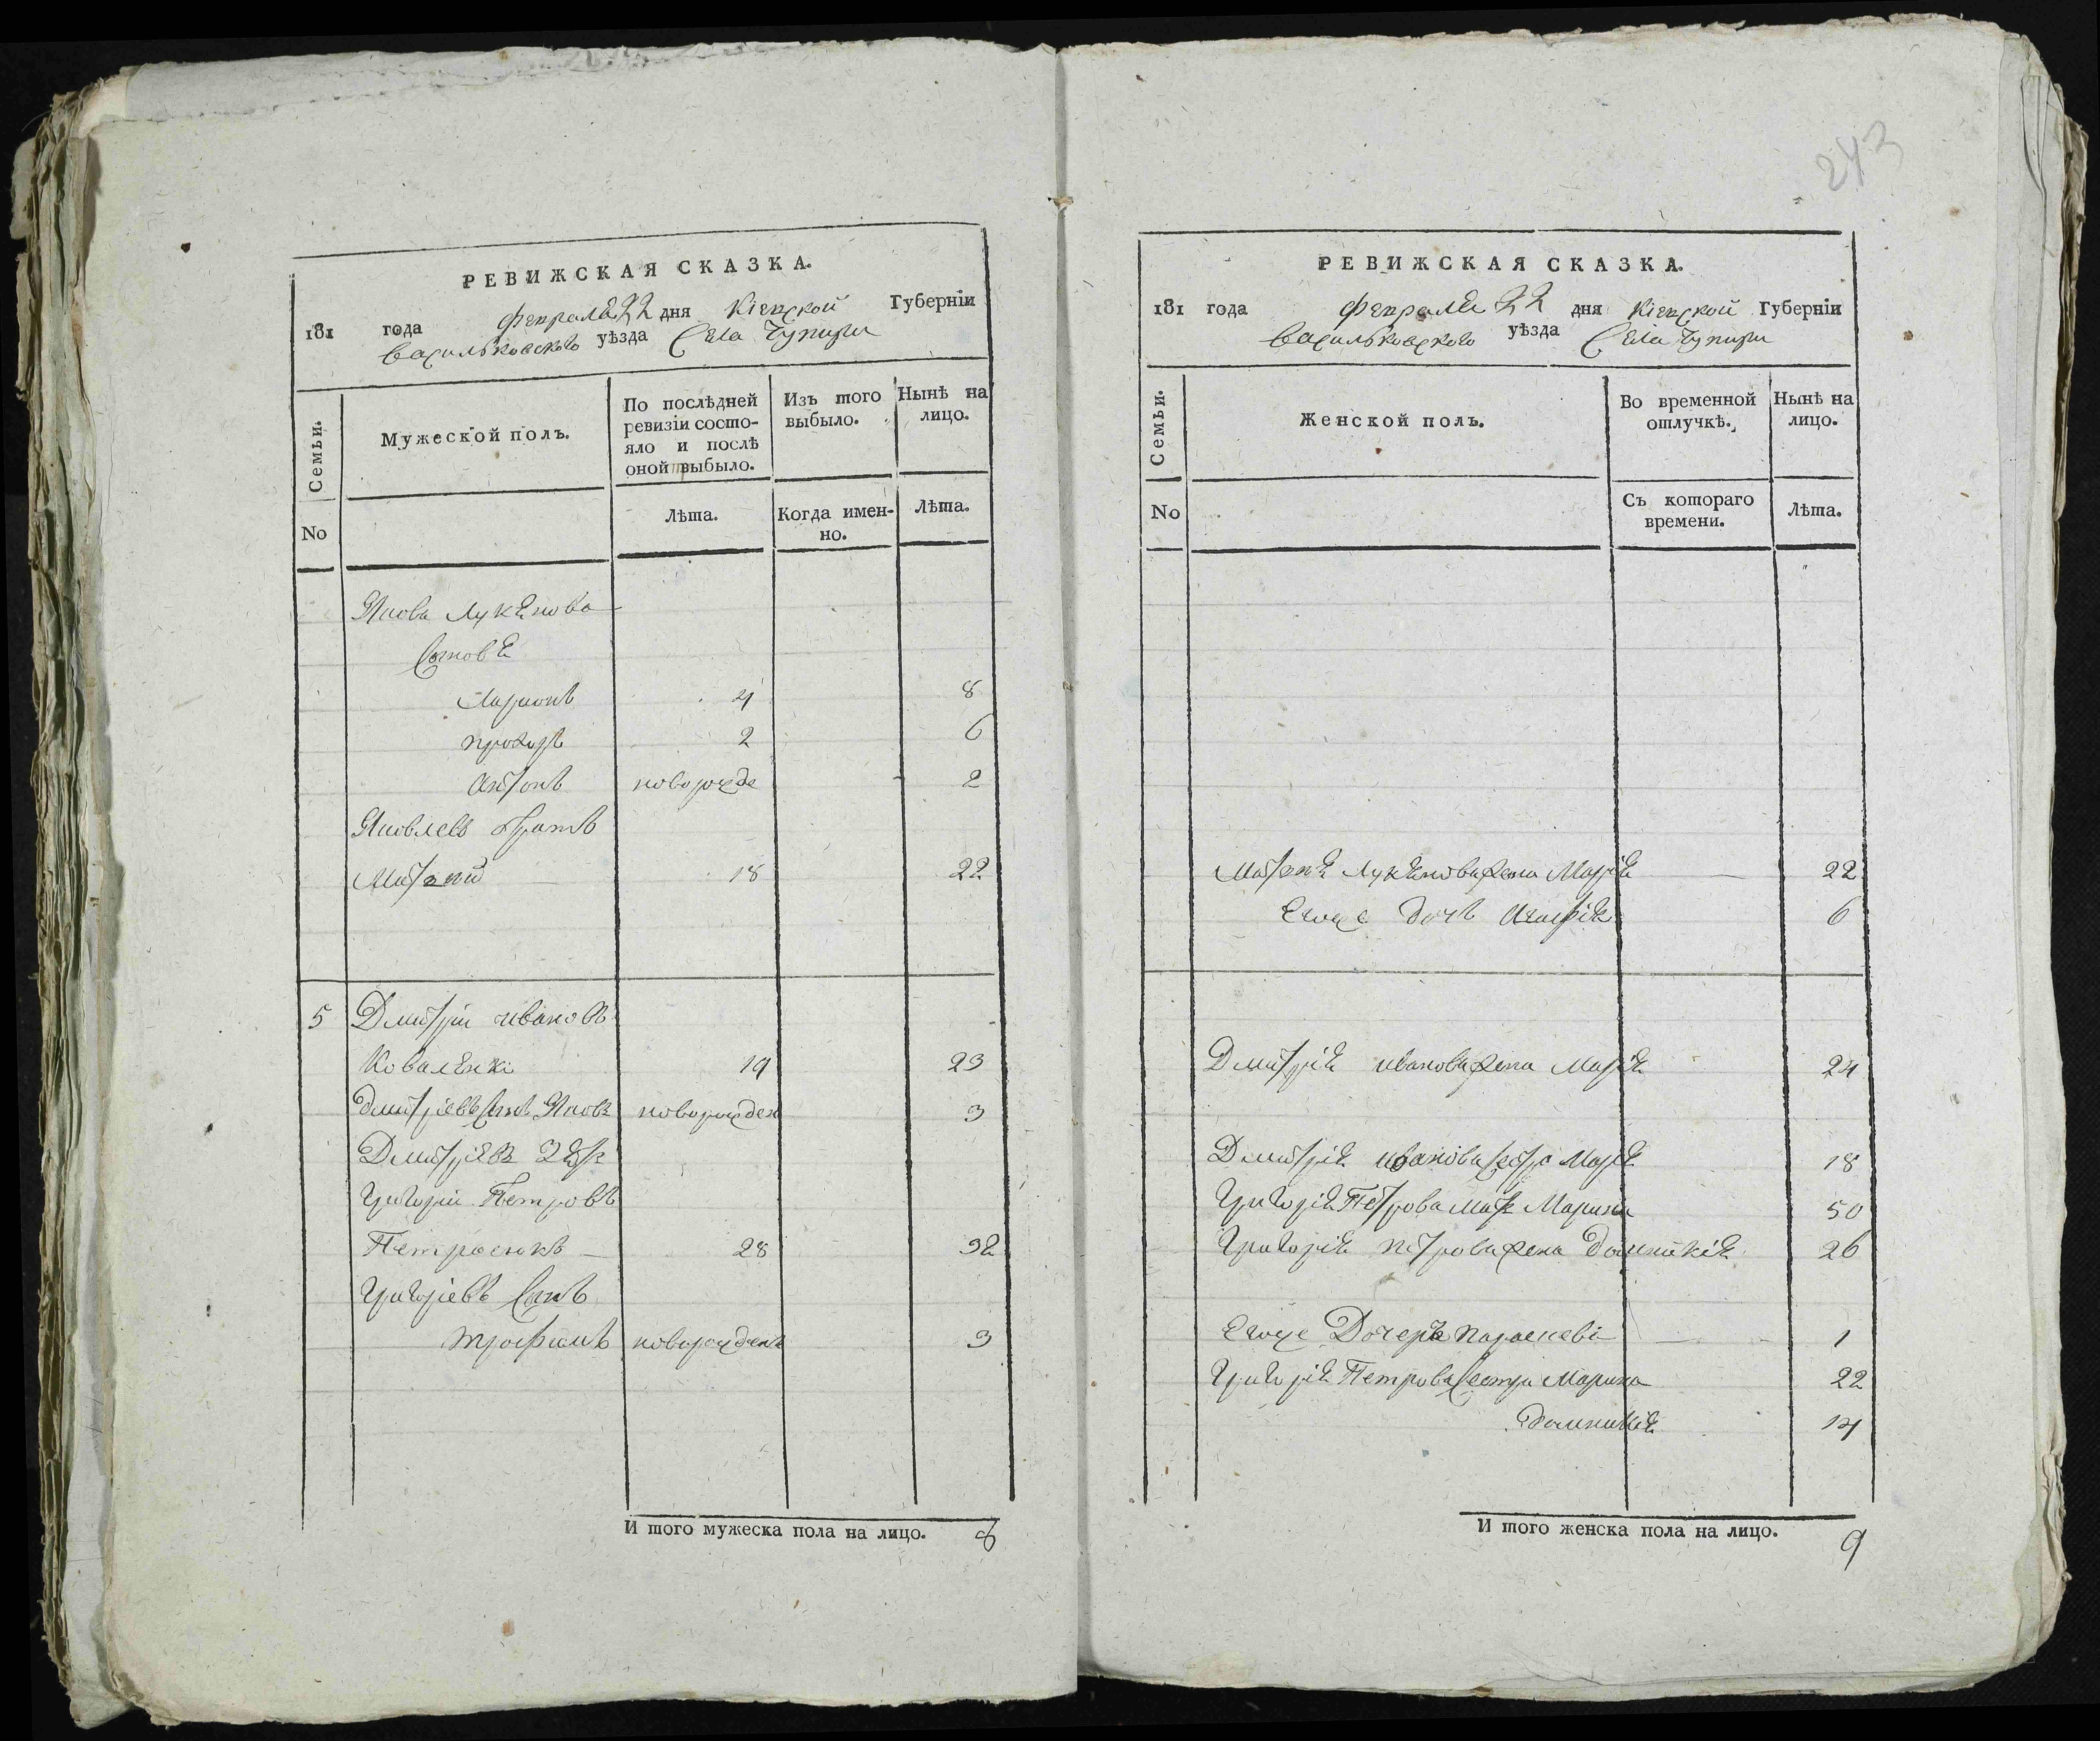 243
РЕВИЖСКАЯ СКАЗКА.
181 года Февраля 22 дня Кіевской Губерніи
Васильковского уѣзда Села Чупири
Семьи.
Мужеской полъ.
По послѣдней ревизіи состояло и послѣ оной выбыло.
Изъ того выбыло.
Нынѣ на лицо.
No
Лѣта.
Когда именно.
Лѣта.
Якова Лукянова
Сынове
Ларионъ 4 8
Прохоръ 2 6
Антонъ новорожде 2
Яковлевъ братъ
Матвий 18 22
5 Дмитрiи Ивановъ
Коваленко 19 23
Дмитрiевъ сынъ Яковъ новорожден 3
Дмитрiевъ зять
Григорiи Петровъ
Петрасюкъ 28 32
Григорiевъ Сынъ
Трофимъ новорожденъ 3
И того мужеска пола на лицо. 8
РЕВИЖСКАЯ СКАЗКА.
181 года Февраля 22 дня Кіевской Губерніи
Васильковского уѣзда Села Чупири
Семьи.
Женской полъ.
Во временной отлучкѣ.
Нынѣ на лицо.
No
Съ котораго времени.
Лѣта.
Лукянова жена Марiя 22
Егоже дочь Агафiя 6
Дмитрiя Иванова жена Марiя 24
Дмитрiя Иванова сестра Марiя 18
Григорiя Петрова мать Марина 50
Григорiя Петрова жена Домникiя 26
Егоже Дочерь Параскевi 1
Григорiя Петрова Сестри Марина 22
Домникiя 14
И того женска пола на лицо. 9